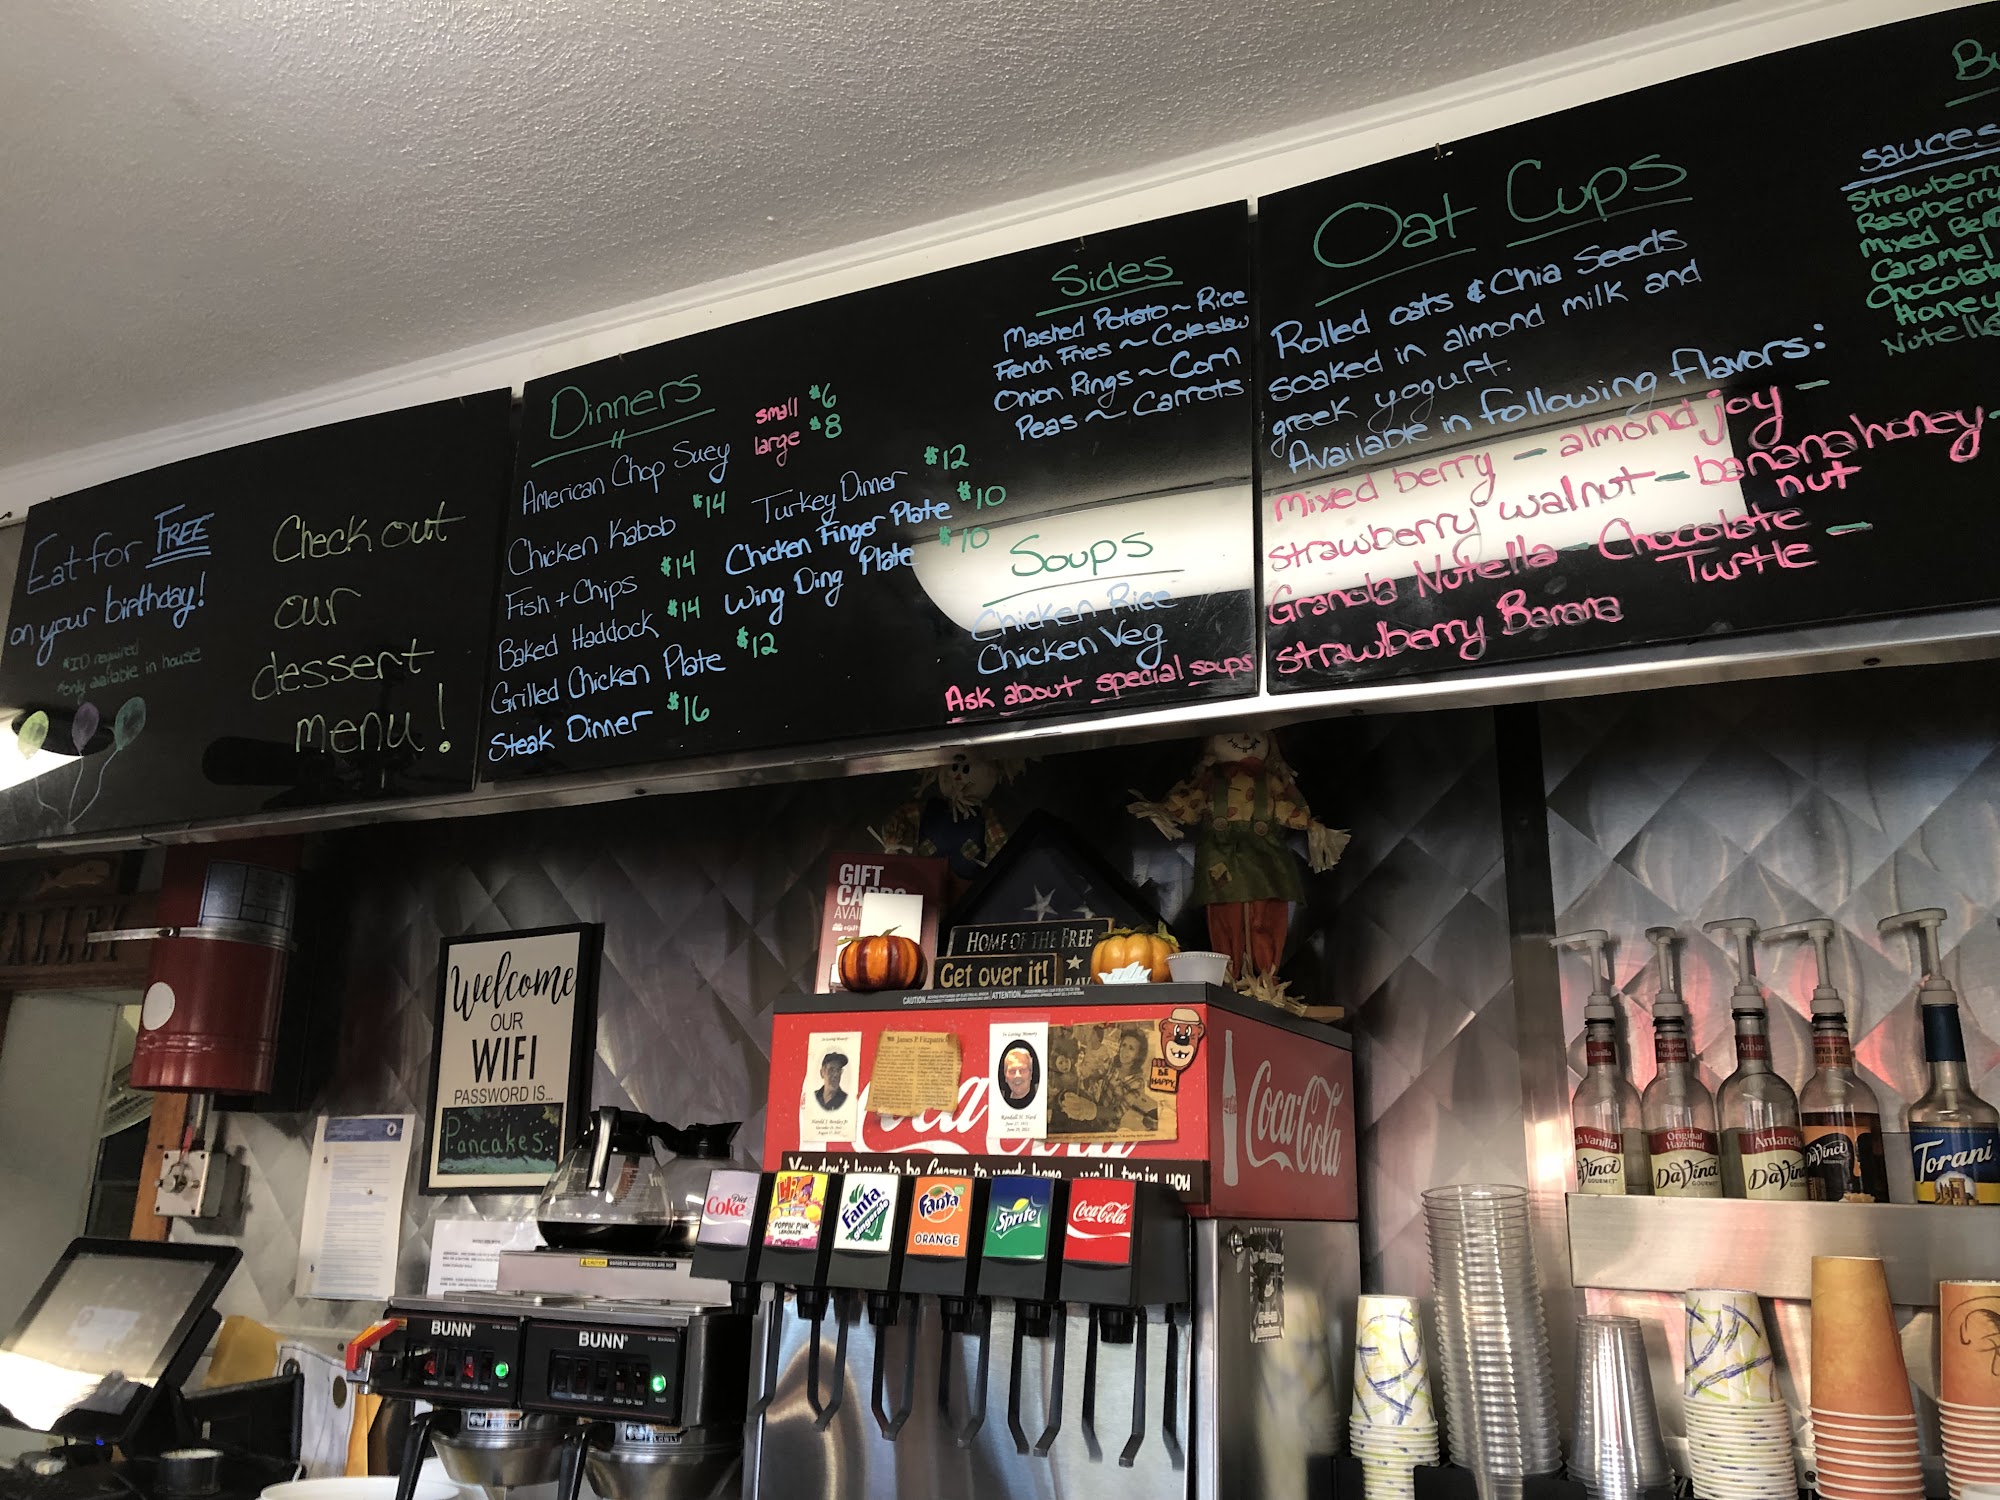 Eat for FREE
on your birthday!
*ID required
*only available in house
Check out
our
dessert
menu!
Dinners
American Chop Suey small $6
large $8
Chicken Kabob $14
Fish + Chips $14
Baked Haddock $14
Grilled Chicken Plate $12
Steak Dinner $16
Turkey Dinner $12
Chicken Finger Plate $10
Wing Ding Plate $10
Sides
Mashed Potato ~ Rice
French Fries ~ Coleslaw
Onion Rings ~ Corn
Peas ~ Carrots
Soups
Chicken Rice
Chicken Veg
Ask about special soups
Oat Cups
Rolled oats & Chia Seeds
soaked in almond milk and
greek yogurt.
Available in following flavors:
Mixed berry - almond joy -
Strawberry walnut - banana honey -
nut
Granola Nutella - Chocolate
Turtle -
Strawberry Banana
sauces
Strawberry
Raspberry
Mixed
Caramel
Chocolate
Honey
Nutella
Welcome
OUR
WIFI
PASSWORD IS...
Pancakes
GIFT
CARDS
HOME OF THE FREE
Get over it!
CAUTION
ATTENTION
In Loving Memory
James P. Fitzpatrick
In Loving Memory
BE
HAPPY
Coca-Cola
You don't have to be Crazy to work here we'll train you
Diet
Coke
POPPIN' PINK
LEMONADE
Fanta
gingerale
Fanta
ORANGE
Sprite
Coca-Cola
CAUTION
BUNN
BUNN
Vanilla
DaVinci
GOURMET
Original
Hazelnut
DaVinci
GOURMET
Amaretto
DaVinci
PUMPKIN PIE
DaVinci
GOURMET
Torani